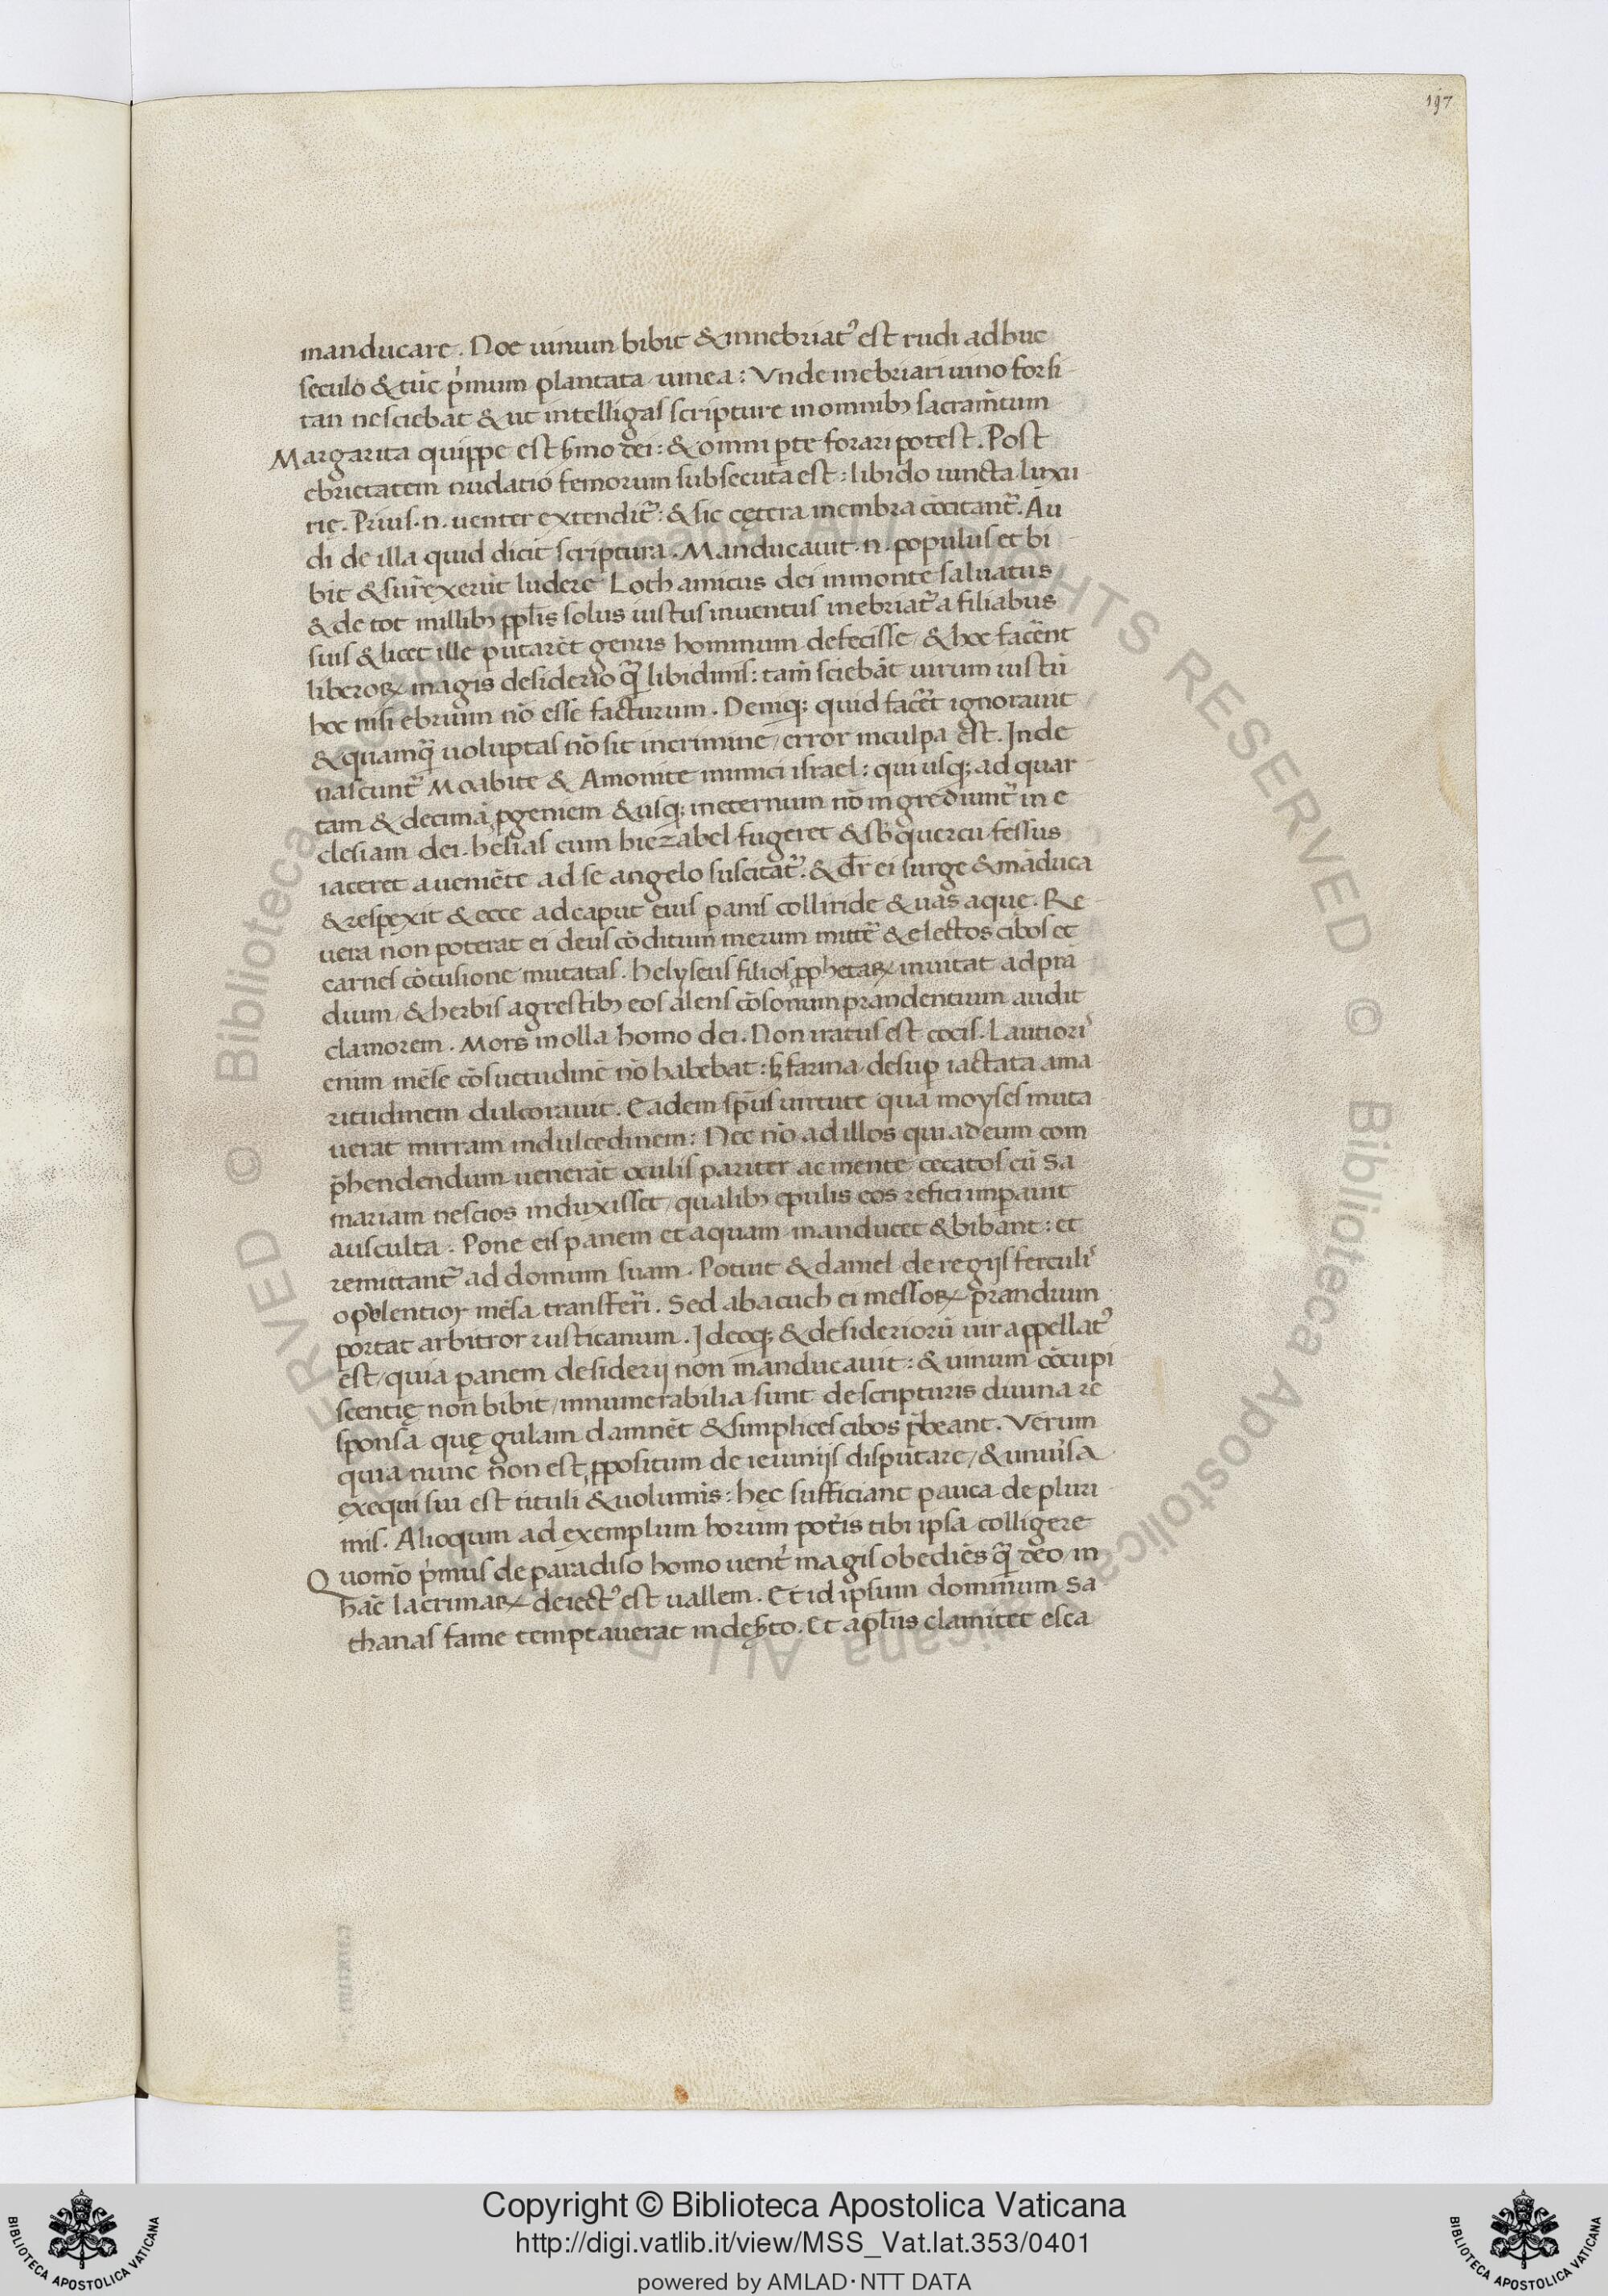 197
manducare. Noe uinum bibit & innebriatꝰ est rudi adhuc
seculo & tūc p̍mum plantata uinea: Vnde inebriari uino forsi
tan nesciebat & ut intelligas scripture in omnibꝫ sacram̄tum
Margarita quippe est ẜmo dei: & omni ꝑte forari potest. Post
ebrietatem nudatio femorum subsecuta est: libido iuncta luxu
rię. Prius .n. uenter extendit᷑: & sic cętera membra cōcitant᷑. Au
di de illa quid dicit scriptura. Manducauit .n. populus et bi
bit & surrexerūt ludere Loth amicus dei in monte saluatus
& de tot millibꝫ ppl̄is solus iustus inuentus inebriat᷑ a filiabus
suis & licet ille putarēt genus hominum defecisse / & hoc facēent
liberoꝝ magis desiderio q̄ libidinis: tam̄ sciebāt uirum iustū
hoc nisi ebrium nō esse facturum. Deniqꝫ quid facēt ignorauit
& quamq̄ uoluptas nō sit in crimine / error in culpa est. Inde
nascunt᷑ Moabite & Amonite inimici israel: qui usqꝫ ad quar
tam & decimā ꝓgeniem & usqꝫ in eternum nō ingrediunt᷑ in e
clesiam dei. helias cum hiezabel fugeret & sub quercu fessus
iaceret a ueniēte ad se angelo suscitat᷑. & dr̄ ei surge & māduca
& respexit & ecce ad caput eius panis colliride & uas aque. Re
uera non poterat ei deus cōditum merum mitte᷑ & electos cibos et
carnes cōtusione mutatas. helyseus filios ꝓphetaꝝ inuitat ad prā
dium / & herbis agrestibꝫ eos alens cōsonum prandentium audit
clamorem. Mors in olla homo dei. Non iratus est cocis. Lautiorꝭ
enim mēse cōsuetudinē nō habebat: sꝫ farina desuꝑ iactata ama
ritudinem dulcorauit. Eadem sp̄us uirtute qua moyses muta
uerat mirram in dulcedinem: Nec nō ad illos qui ad eum com
p̄hendendum uenerāt oculis pariter ac mente cecatos cū Sa
mariam nescios induxisset / qualibꝫ epulis eos refici imꝑauit
ausculta. Pone eis panem et aquam manducet & bibant: et
remittant᷑ ad domum suam. Potuit & daniel de regijs ferculꝭ
opulentior mēsa transferri. Sed abacuch ei messoꝝ prandium
portat arbitror rusticanum. Ideoqꝫ & desideriorū uir appellatꝰ
est / quia panem desiderij non manducauit: & uinum cōcupi
scentię non bibit / innumerabilia sunt de scripturis diuina re
sponsa quę gulam damnēt & simplices cibos p̄beant. Verum
quia nunc non est ꝓpositum de ieiunijs disputare / & uniuẜa
exequi sui est tituli & uoluminis: hęc sufficiant pauca de pluri
mis. Alioquin ad exemplum horum potis tibi ipsa colligere
Quom̄o p̍mus de paradiso homo uent̍ magis obediēs q̄ deo / in
hāc lacrimaꝝ deiectꝰ est uallem. Et id ipsum dominum Sa
thanas fame temptauerat in deẜto. Et apl̄us clamitet esca
Copyright © Biblioteca Apostolica Vaticana
http://digi.vatlib.it/view/MSS_Vat.lat.353/0401
powered by AMLAD·NTT DATA